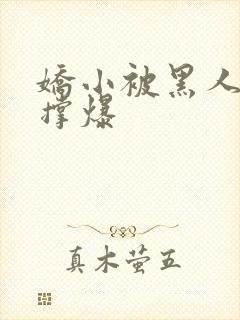 嬌小被黑人
撐爆
真木萤五